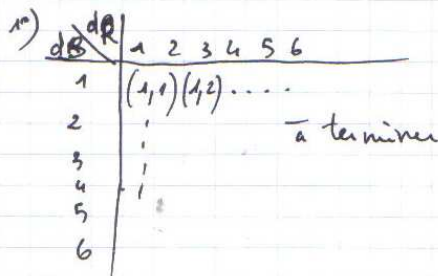 1°) dR
dB 1 2 3 4 5 6
1 (1,1) (1,2) .....
2 à terminer
3
4
5
6